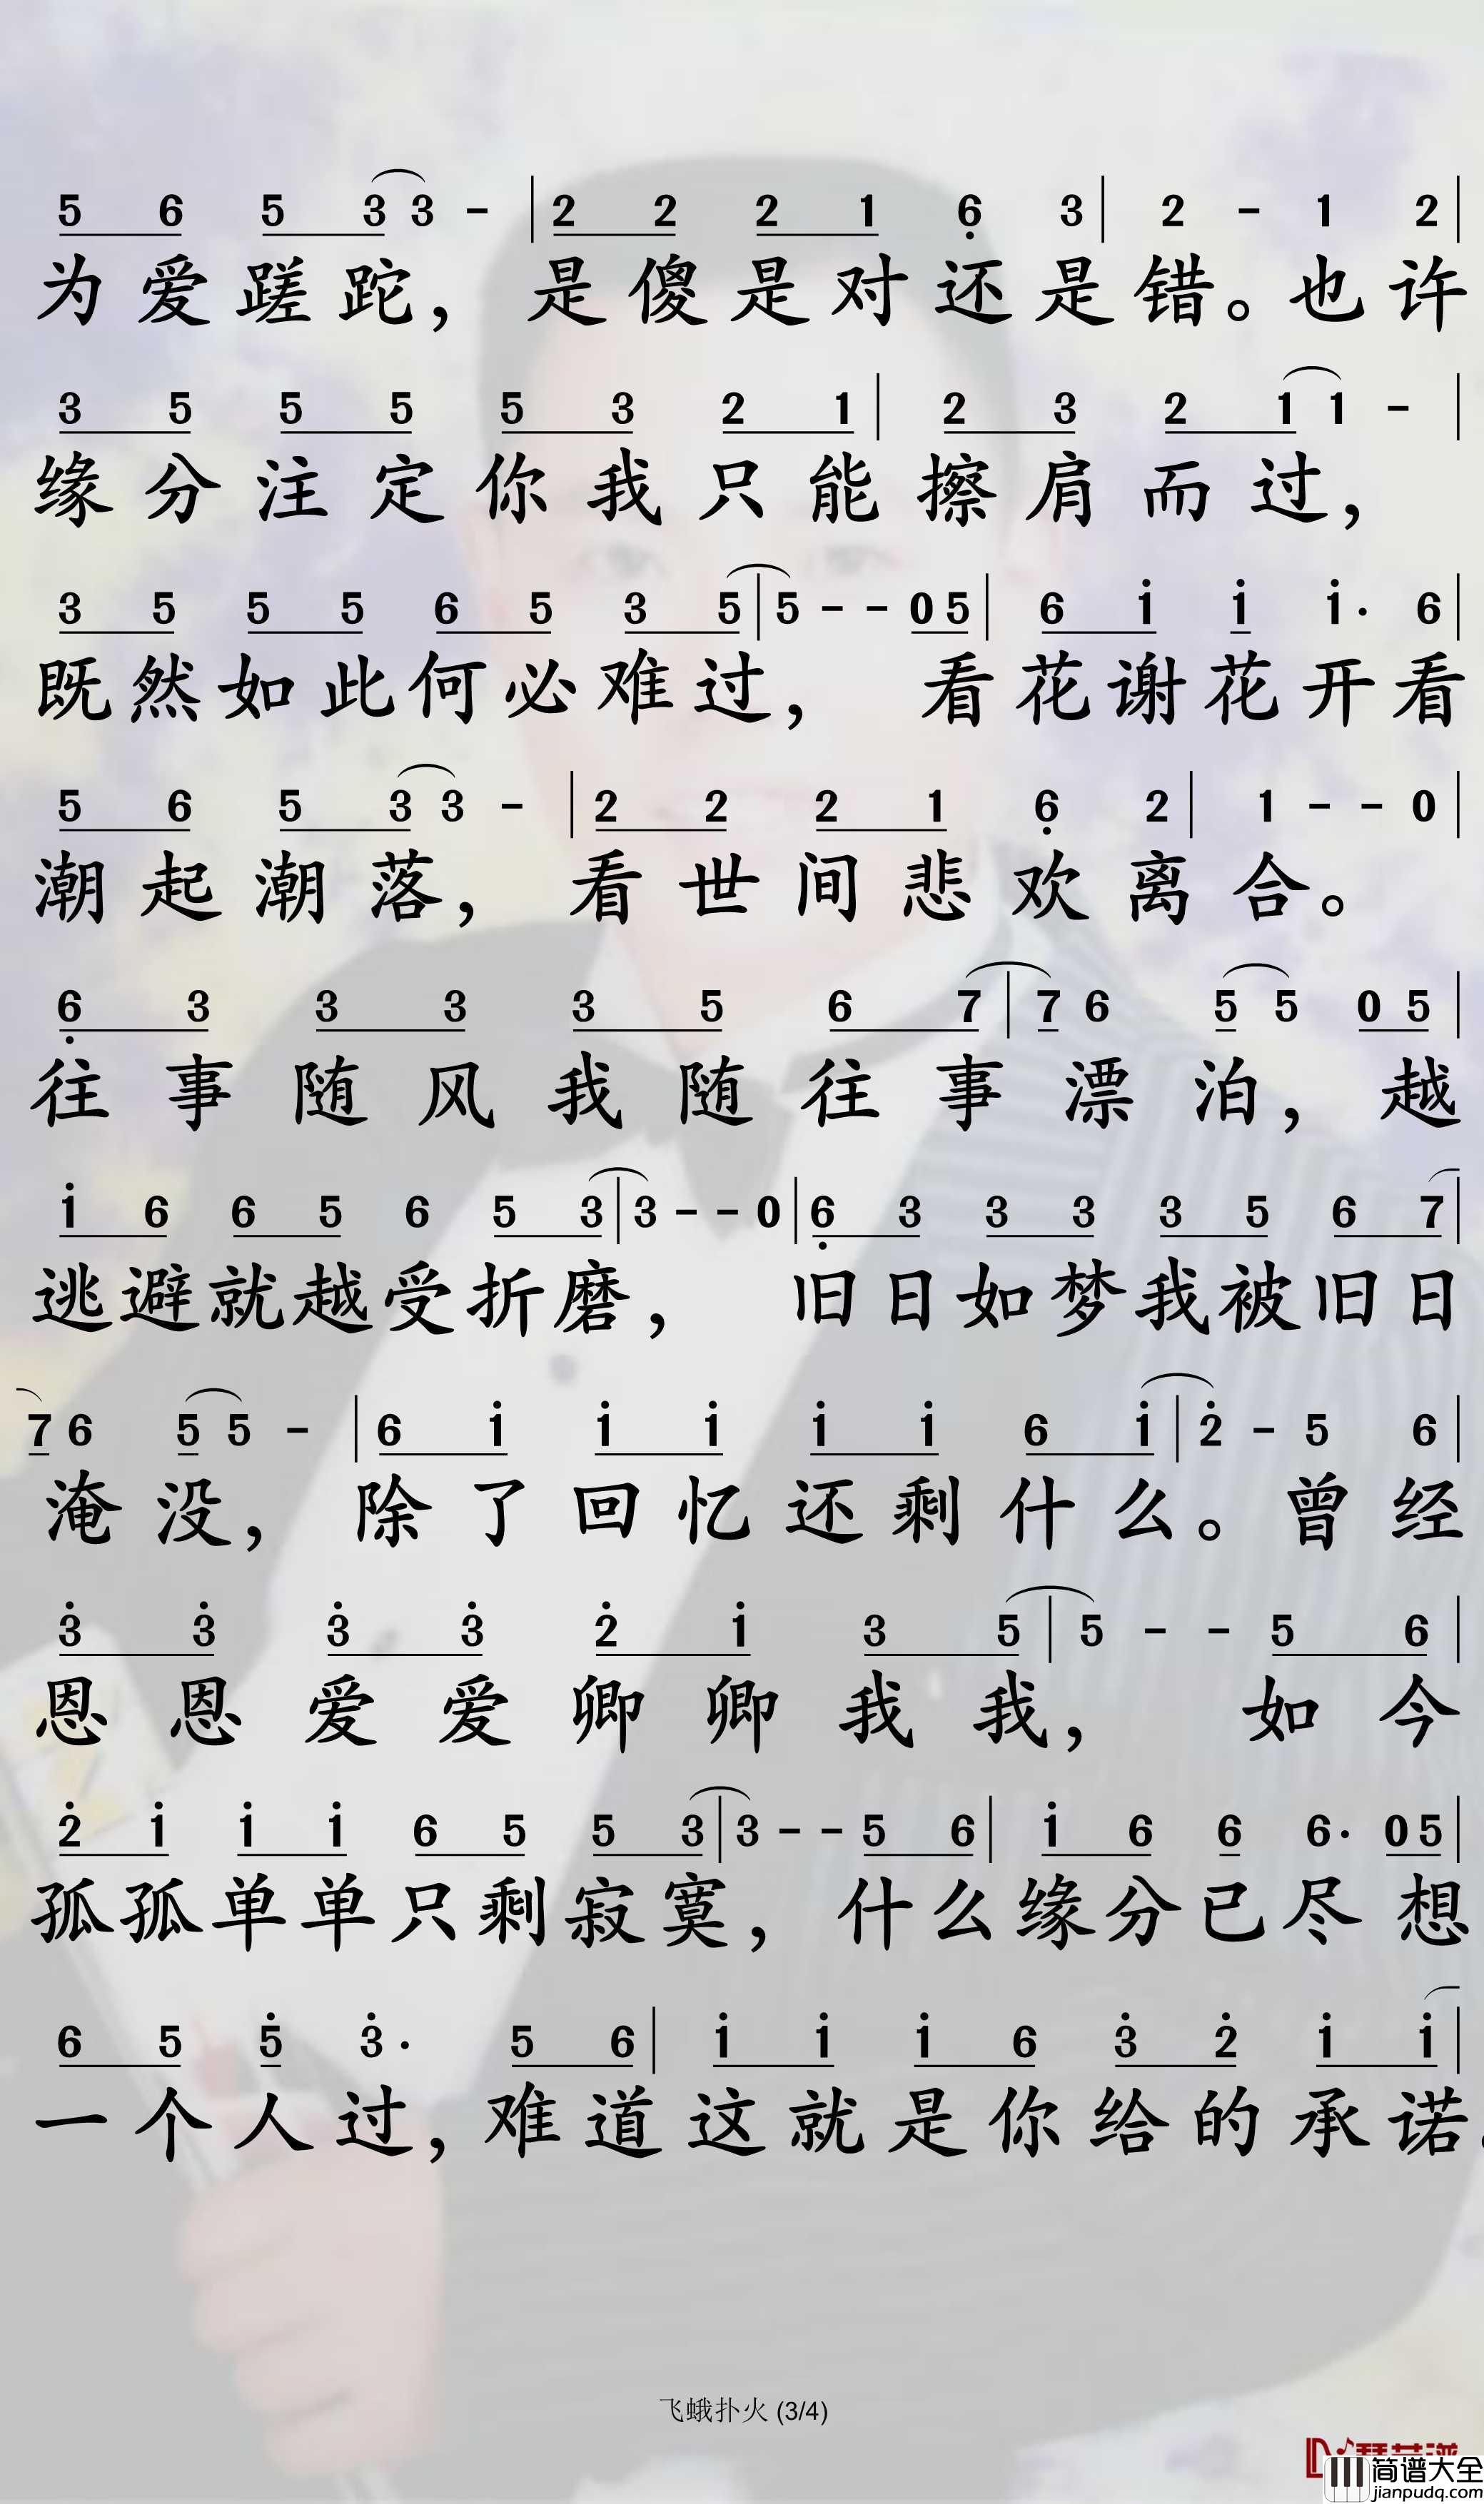 5 6 5 3 3 - | 2 2 2 1 6̣ 3 | 2 - 1 2 |
为爱蹉跎，是傻是对还是错。也许
3 5 5 5 5 3 2 1 | 2 3 2 1 1 - |
缘分注定你我只能擦肩而过，
3 5 5 5 6 5 3 5 | 5 - - 0 5 | 6 i i i· 6 |
既然如此何必难过，看花谢花开看
5 6 5 3 3 - | 2 2 2 1 6̣ 2 | 1 - - 0 |
潮起潮落，看世间悲欢离合。
6̣ 3 3 3 3 5 6 7 | 7 6 5 5 0 5 |
往事随风我随往事漂泊，越
i 6 6 5 6 5 3 | 3 - - 0 | 6̣ 3 3 3 3 5 6 7 |
逃避就越受折磨，旧日如梦我被旧日
7 6 5 5 - | 6 i i i i i 6 i | 2̇ - 5 6 |
淹没，除了回忆还剩什么。曾经
3̇ 3̇ 3̇ 3̇ 2̇ i 3 5 | 5 - - 5 6 |
恩恩爱爱卿卿我我，如今
2̇ i i i 6 5 5 3 | 3 - - 5 6 | i 6 6 6· 0 5 |
孤孤单单只剩寂寞，什么缘分已尽想
6 5 5̇ 3̇· 5 6 | i i i 6 3̇ 2̇ i i |
一个人过，难道这就是你给的承诺。
飞蛾扑火 (3/4)
简谱大全
jianpudq.com